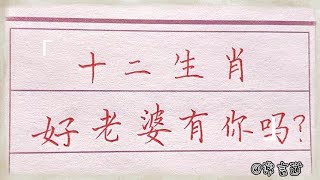 十二生肖
好老婆有你吗?